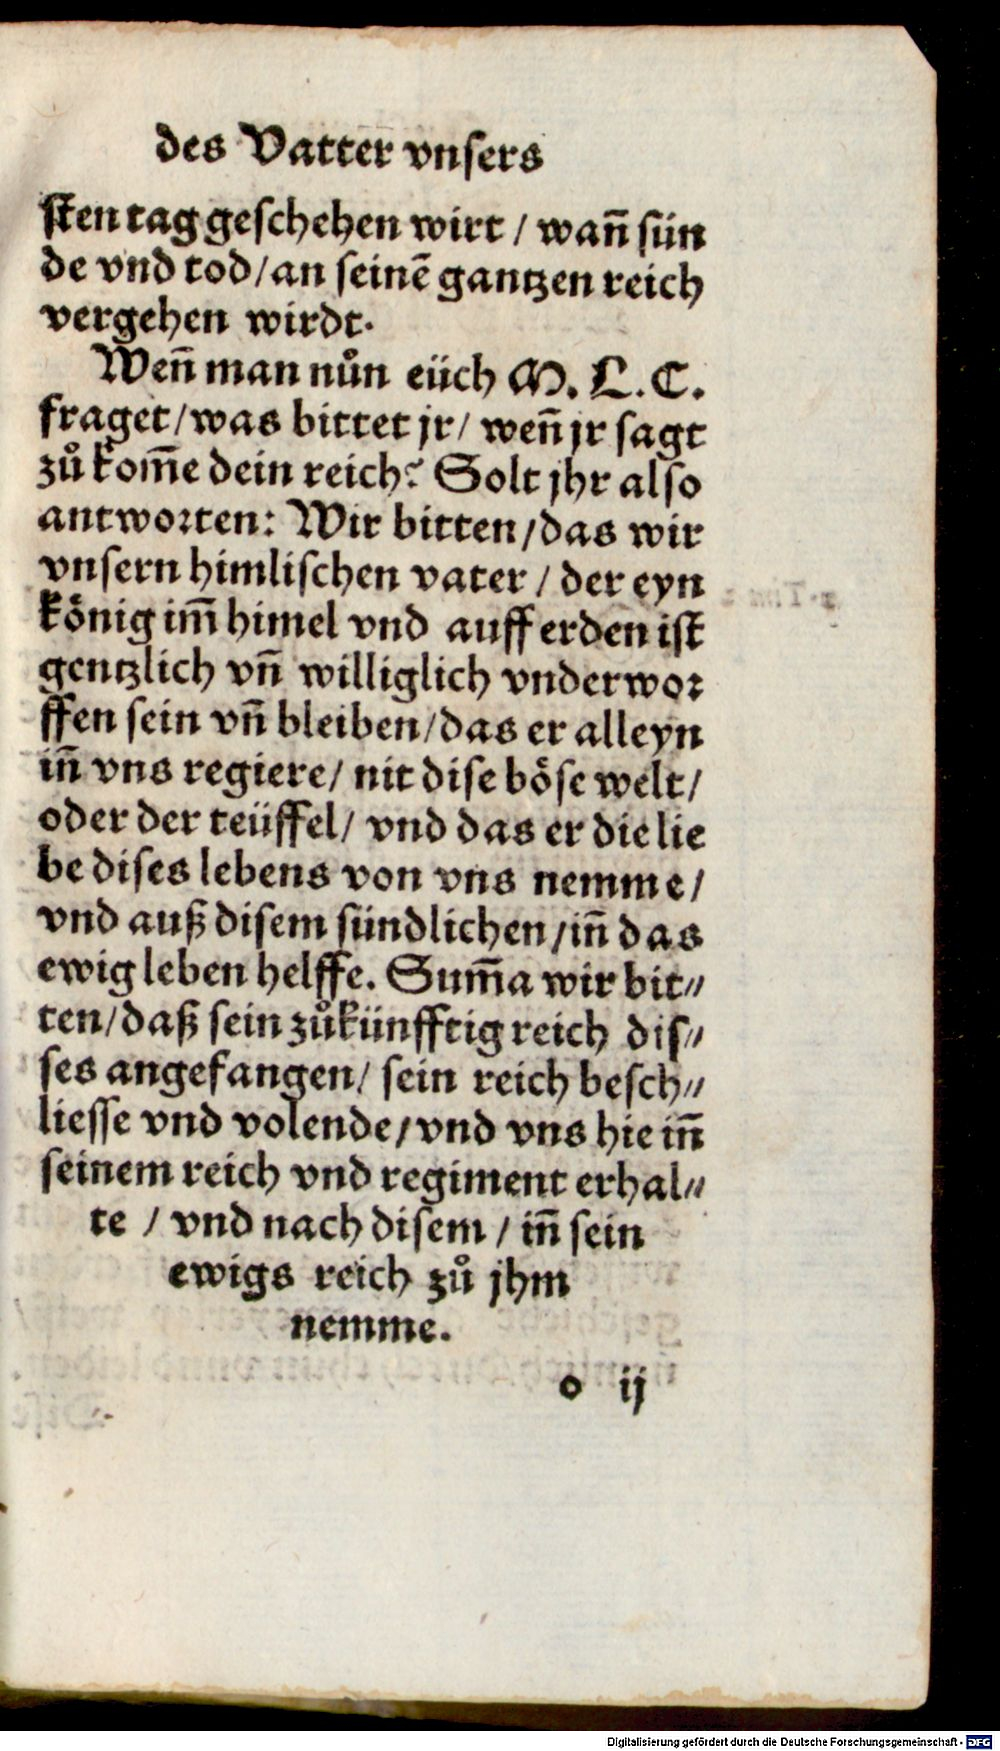 des Vatter vnsers
sten tag geschehen wirt / wañ sün
de vnd tod / an seinē gantzen reich
vergehen wirdt.
Weñ man nůn eüch M. L. C.
fraget / was bittet jr / weñ jr sagt
zů kom̃e dein reich? Solt jhr also
antworten: Wir bitten / das wir
vnsern himlischen vater / der eyn
könig im̃ himel vnd auff erden ist
gentzlich vñ williglich vnderwor
ffen sein vñ bleiben / das er alleyn
iñ vns regiere / nit dise böse welt /
oder der teüffel / vnd das er die lie
be dises lebens von vns nemme /
vnd auß disem sündlichen / iñ das
ewig leben helffe. Sum̃a wir bit⸗
ten / daß sein zůkünfftig reich dis⸗
ses angefangen / sein reich besch⸗
liesse vnd volende / vnd vns hie iñ
seinem reich vnd regiment erhal⸗
te / vnd nach disem / iñ sein
ewigs reich zů jhm
nemme.
o ij
Digitalisierung gefördert durch die Deutsche Forschungsgemeinschaft - DFG